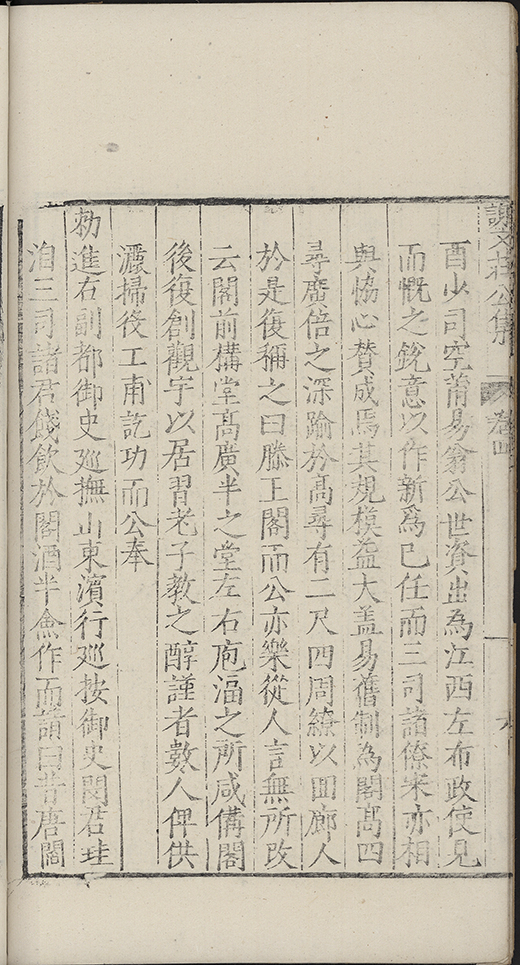 謝文莊公集 卷四 六
酉少司空莆昜翁公世資出為江西左布政使見
而慨之銳意以作新為己任而三司諸僚寀亦相
與恊心賛成焉其規模益大盖易舊制為閣高四
尋廣倍之深踰於高尋有一尺四周繚以囬廊人
於是復稱之曰滕王閣而公亦樂從人言無所改
云閣前構堂高廣半之堂左右庖湢之所咸俻閣
後復創觀宇以居習老子教之醇謹者數人俾供
灑掃役工甫訖功而公奉
勑進右副都御史廵撫山東濵行廵按御史閔君珪
洎三司諸君餞飲於閣酒半僉作而請曰昔唐閣